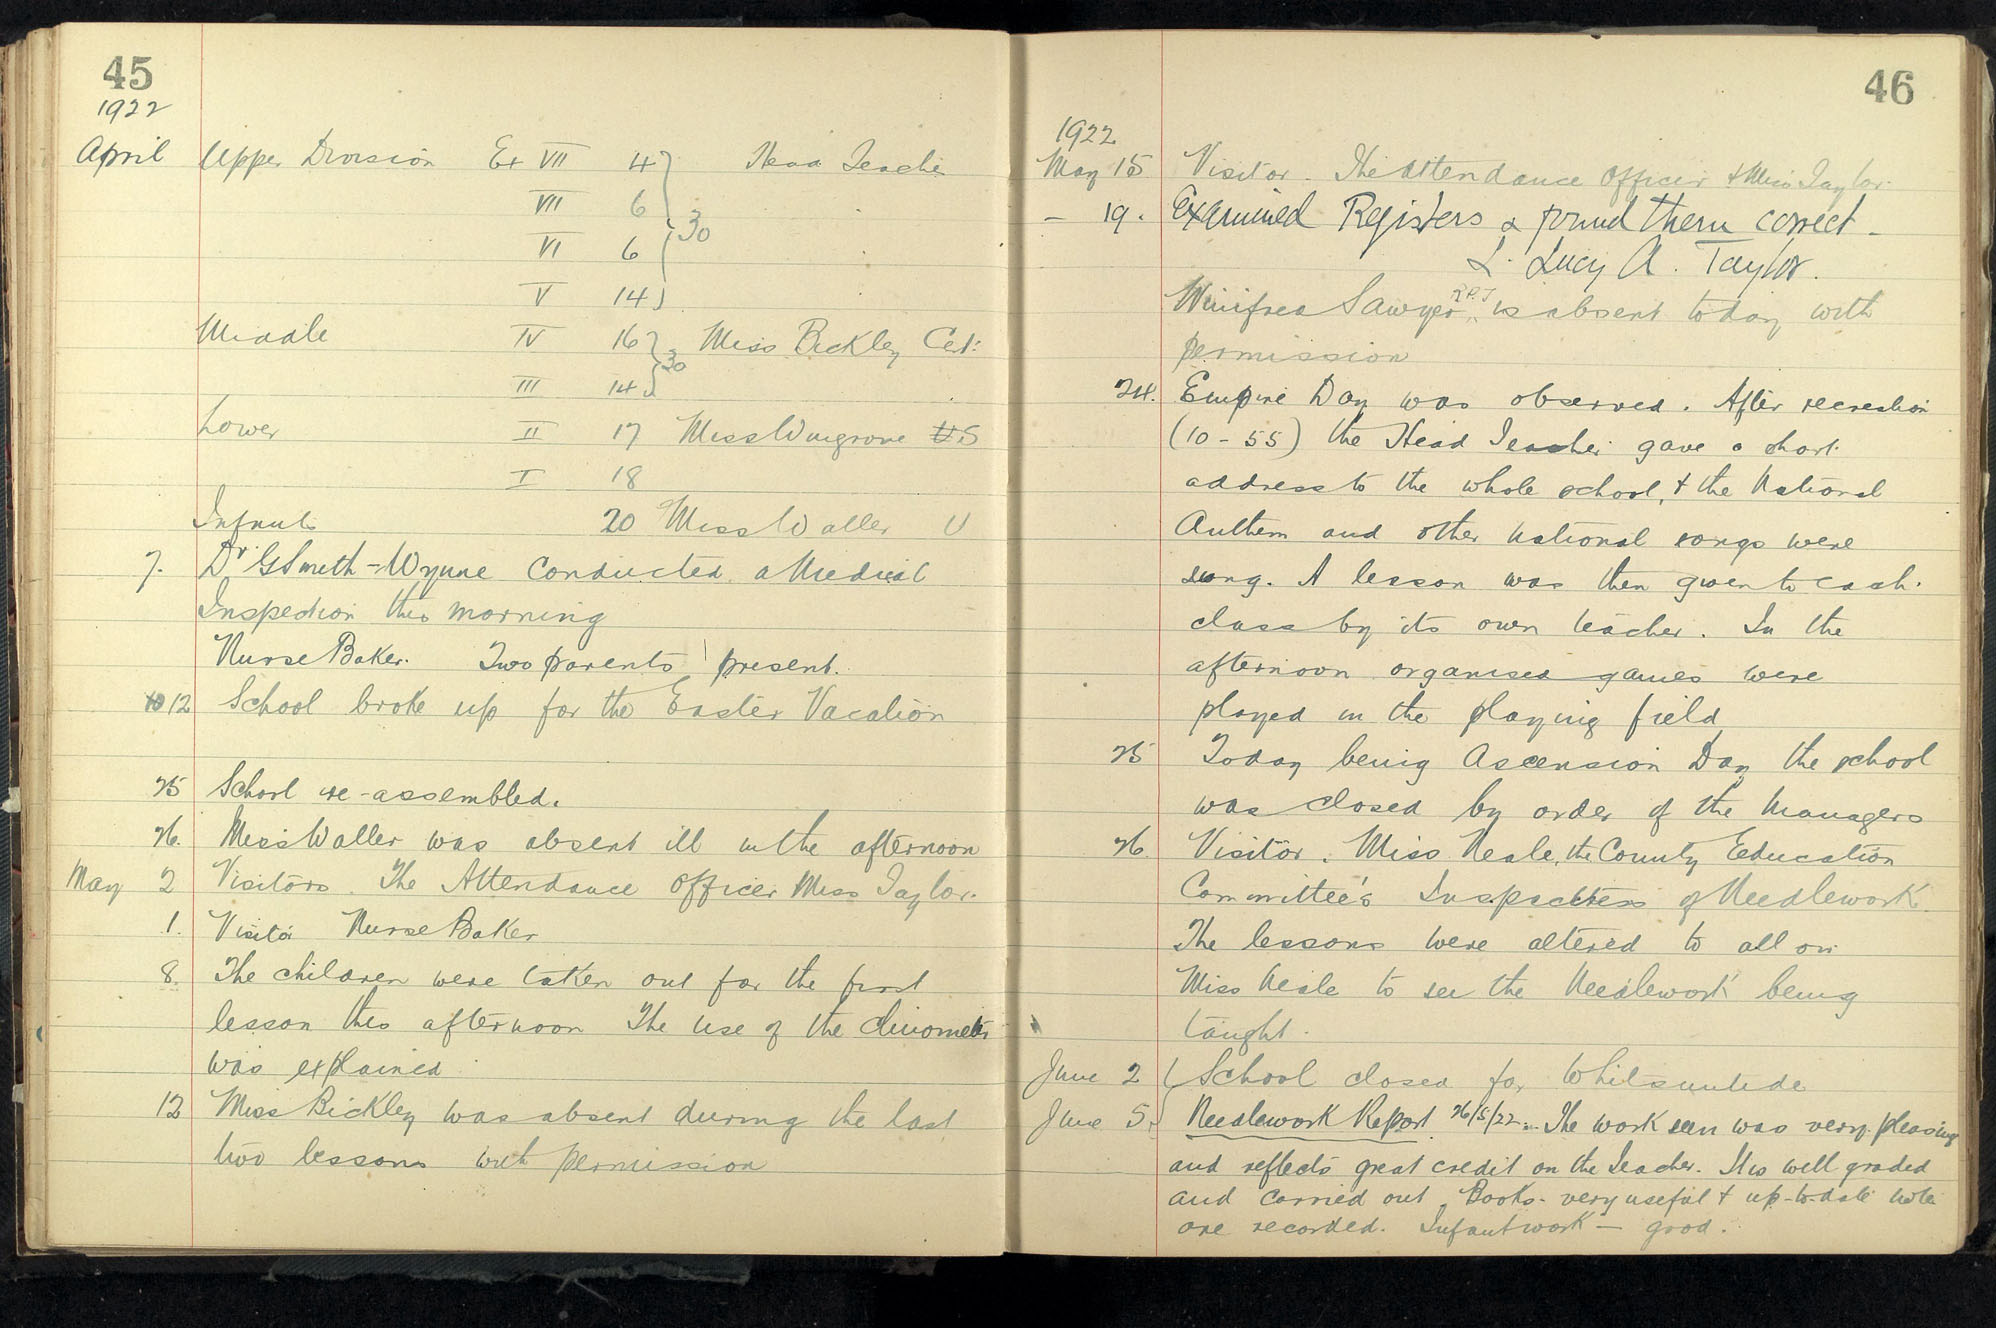 45
1922
April Upper Division Ex VII 4 Head Teacher
VII 6
30
VI 6
V 14
Middle IV 16 Miss Bickley Cert:
30
III 14
Lower II 17 Miss Wingrove U.S
I 18
Infants 20 Miss Waller U
7. Dr G Smith-Wynne conducted a Medical
Inspection this morning
Nurse Baker. Two parents present.
12 School broke up for the Easter Vacation
25 School re-assembled.
26. Miss Waller was absent ill in the afternoon
May 2 Visitors. The Attendance Officer Miss Taylor.
1. Visitor Nurse Baker
8. The children were taken out for the first
lesson this afternoon The use of the clinometer
was explained
12 Miss Bickley was absent during the last
two lessons with permission
46
1922
May 15 Visitor. The Attendance Officer & Miss Taylor.
– 19. Examined Registers & found them correct –
L. Lucy A. Taylor.
Winifred Sawyer R.P.T is absent today with
permission
24. Empire Day was observed. After recreation
(10-55) the Head Teacher gave a short
address to the whole school, & the National
Anthem and other national songs were
sung. A lesson was then given to each
class by its own teacher. In the
afternoon organised games were
played in the playing field
25 Today being Ascension Day the school
was closed by order of the Managers
26. Visitor. Miss Neale, the County Education
Committee's Inspectress of Needlework
The lessons were altered to allow
Miss Neale to see the Needlework being
taught.
June 2 School closed for Whitsuntide
June 5. Needlework Report 26/5/22. The work seen was very pleasing
and reflects great credit on the Teacher. It is well graded
and carried out. Books - very useful & up-to-date notes
are recorded. Infant work – good.